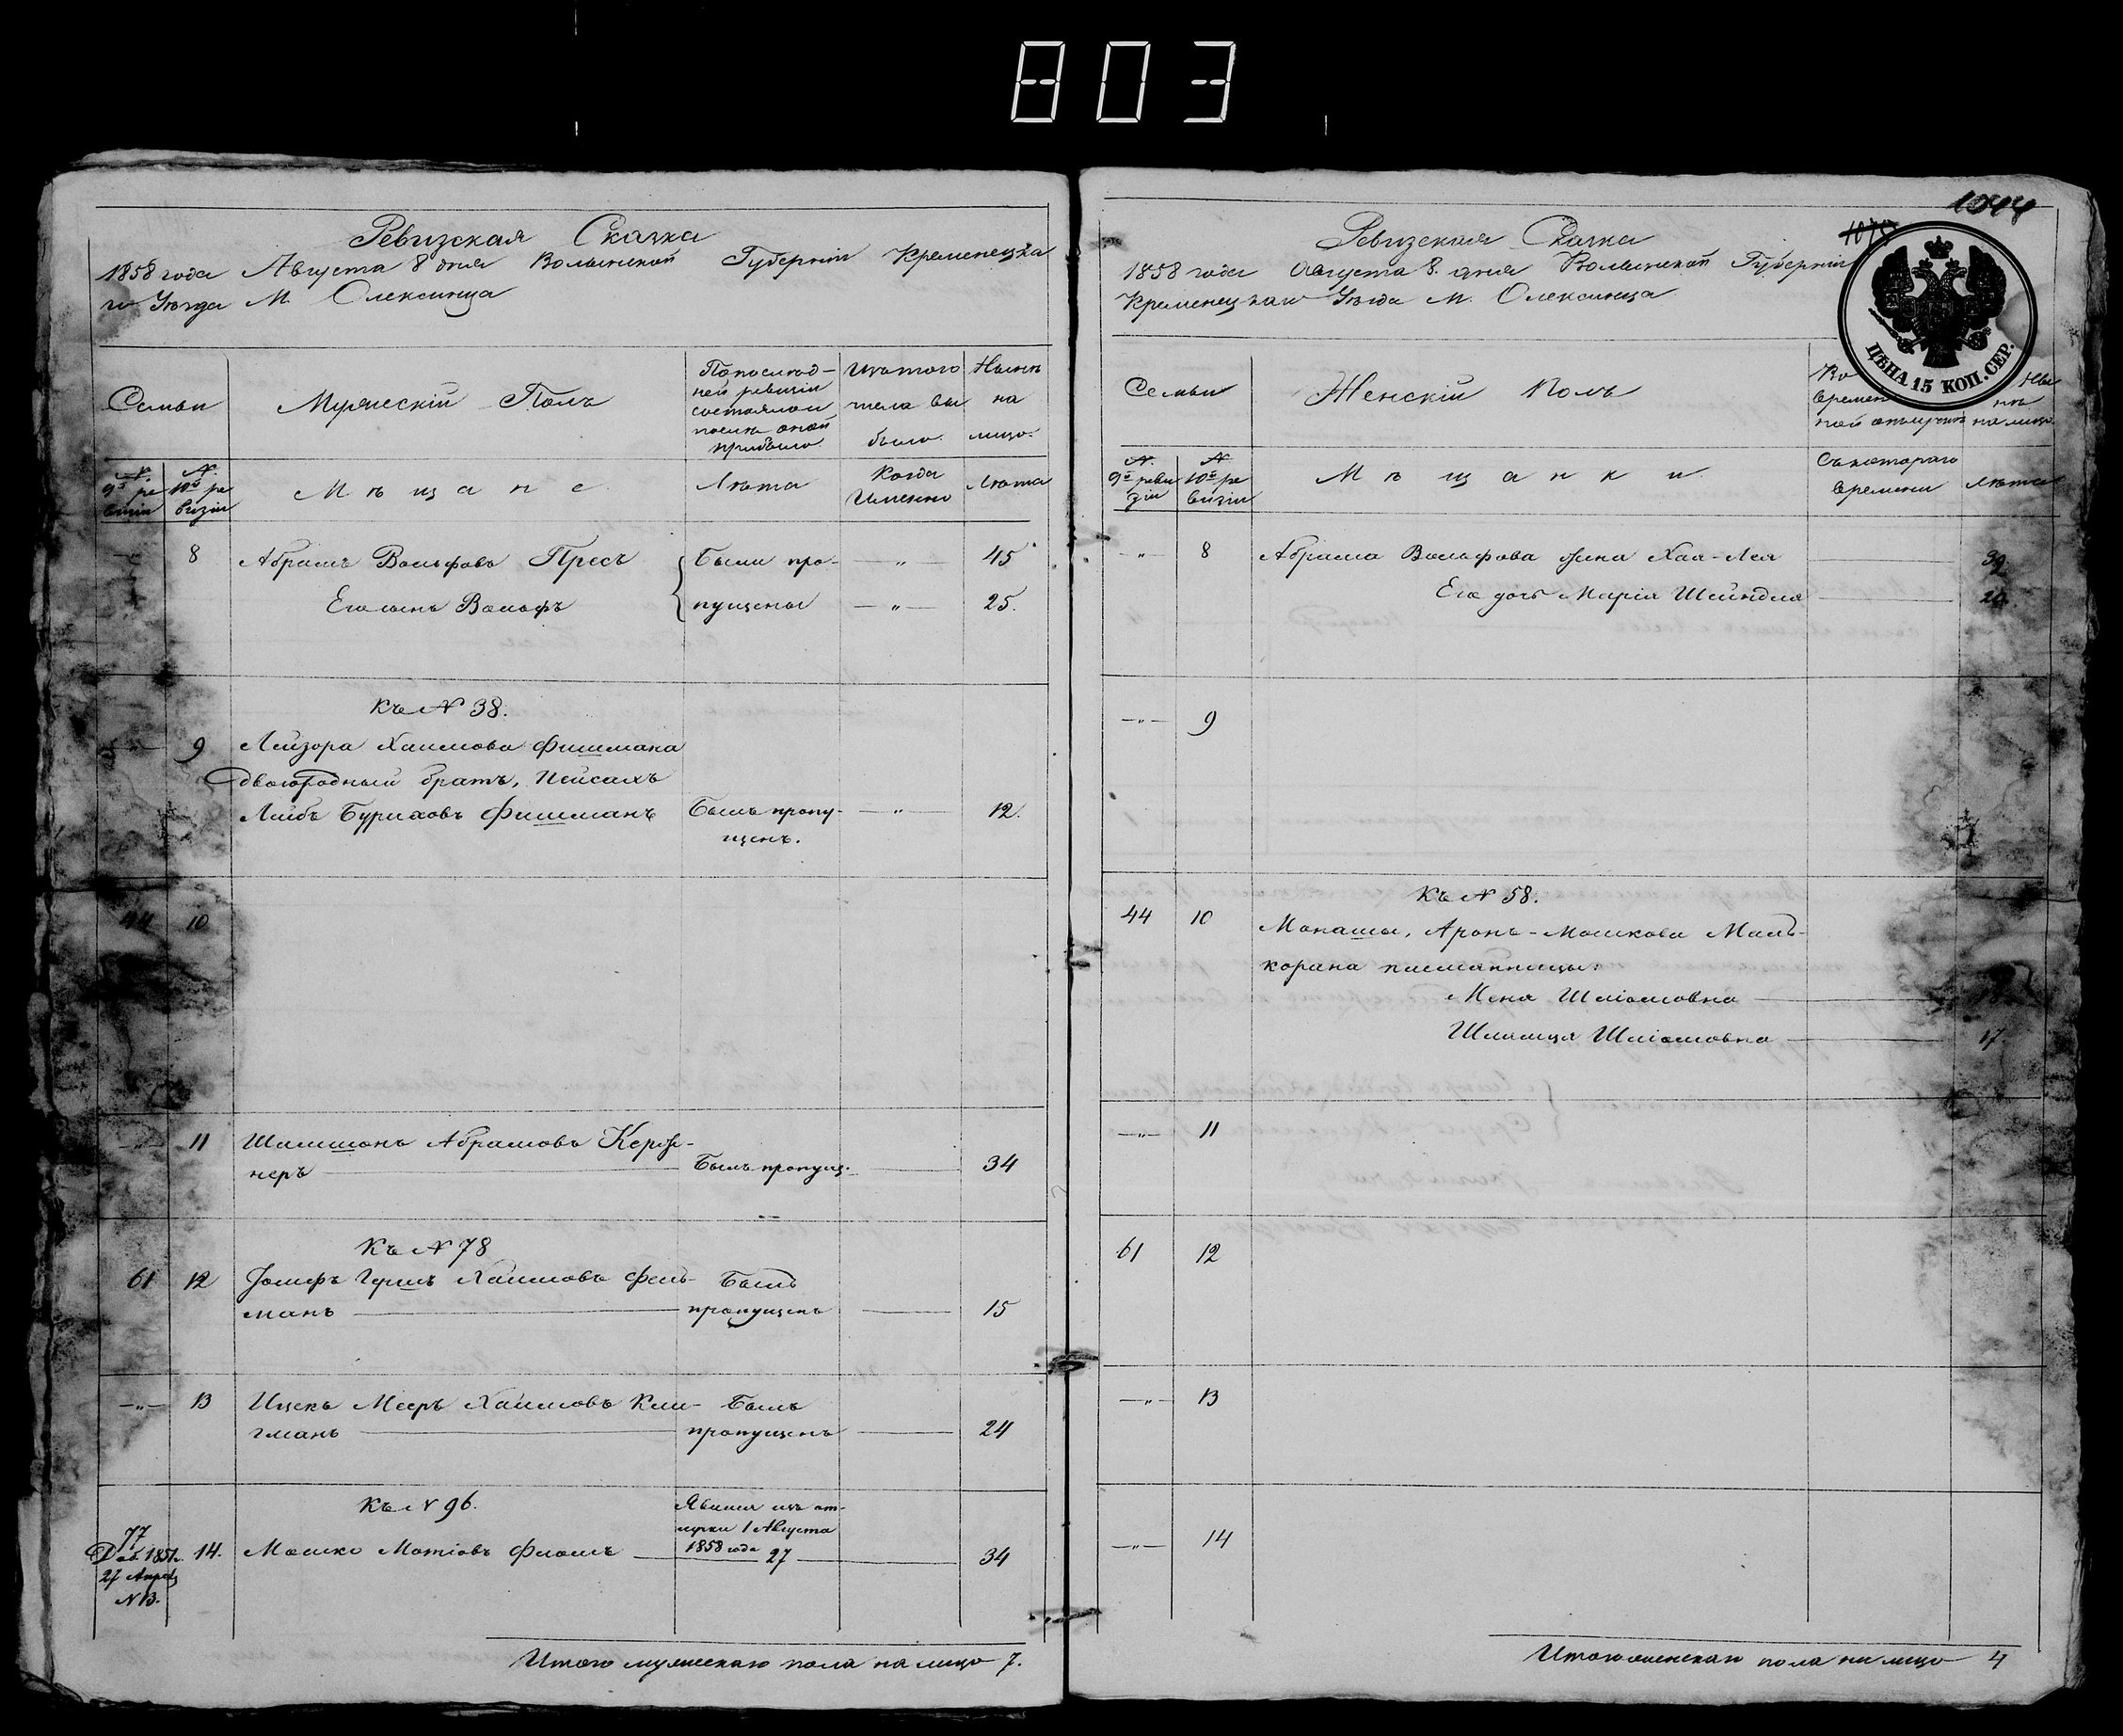 803
Ревизская Сказка
1858 года Августа 8 дня Волынской Губернiи Кременецка
го Уѣзда М. Олексинца
Семьи
Мужескiй Полъ
По послѣд-
ней ревизiи
состояло и
послѣ оной
прибыло
Изъ того
числа вы
было
Нынѣ
на
лицо.
№
9й ре
визiи
№
10й ре
визiи
Мѣщане
Лѣта
Когда
Именно
Лѣта
8 Абрамъ Вольфовъ Пресъ Были про- — „ — 45
Его сынъ Вольфъ пущены — „ — 25.
Къ № 38.
9 Лейзора Хаимова Фишмана
двоюродный братъ, Пейсахъ
Лейбъ Буриховъ Фишманъ Былъ пропу- — „ — 12.
щенъ.
44 10
11 Шамшонъ Абрамовъ Керж-
неръ — Былъ пропущ. — 34
Къ № 78
61 12 Iосифъ Гершъ Хаимовъ Фель- Былъ
манъ — пропущенъ — 15
— „ — 13 Ицекъ Мееръ Хаимовъ Кли- Былъ
гманъ — пропущенъ — 24
Къ № 96.
Явился изъ от-
лучки 1 Августа
1858 года
77
Доп. 1851г. 14. Мошко Мотiовъ Фломъ — 27 — 34
27 Апрѣ
№ 13.
Итого мужескаго пола на лицо 7.
1044
1079
Ревизская Сказка
1858 года Августа 8. дня Волынской Губернiи
Кременецкаго Уѣзда М. Олексинца
ЦѢНА 15 КОП. СЕР.
Семьи
Женскiй Полъ
Во
времен
ной отлучкѣ
Ны
нѣ
на лицо
№
9й реви
зiи
№
10й ре
визiи
Мѣщанки
Съ котораго
времени
Лѣта
— „ — 8 Абрама Вольфова жена Хая-Лея — 39
Его дочь Марiя Шейндля — 20.
— „ — 9
Къ № 58.
44 10 Монаша, Аронъ-Мошкова Маль-
корана племянницы:
Меня Шлiомовна —
Шлимця Шлiомовна — 17.
— „ — 11
61 12
— „ — 13
— „ — 14
Итого женскаго пола на лицо 4